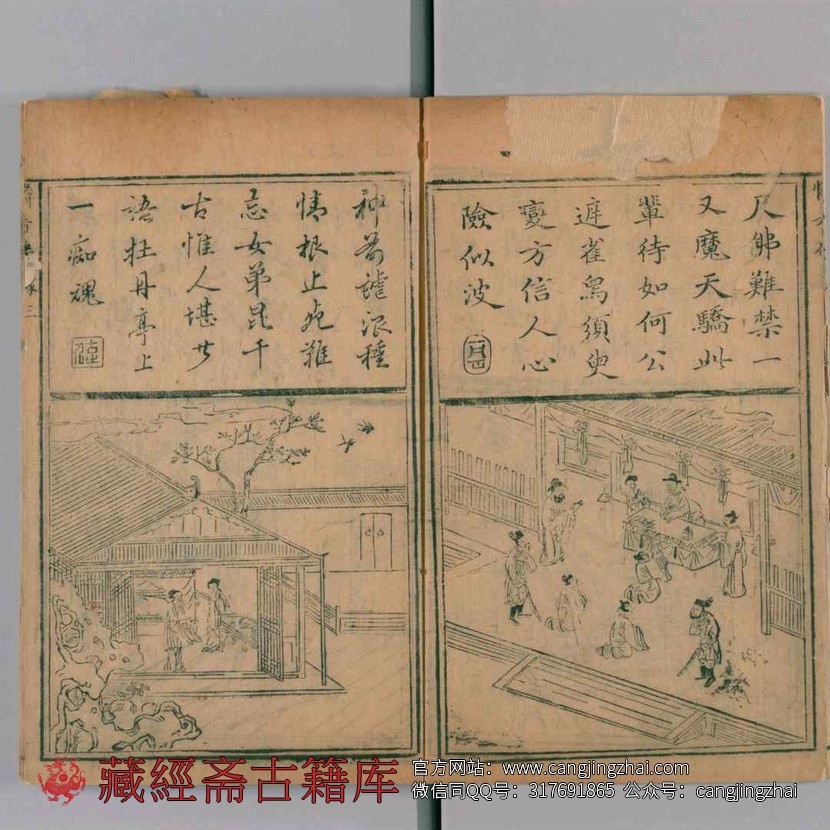 尺佛難禁一
丈魔天驕此
輩待如何公
雀須臾
變方信人心
險似波
神前謔浪種
情根死難
忘女弟昆千
古惟人堪
語牡丹亭上
一痴魂
藏經斋古籍库
官方网站：www.cangjingzhai.com
微信同QQ号：317691865 公众号：cangjingzhai